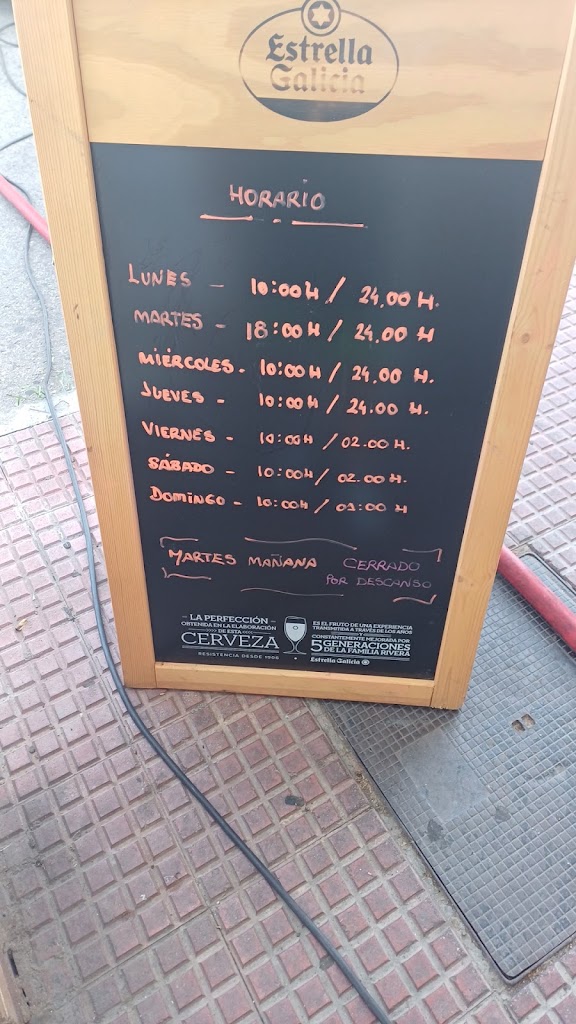 Estrella
Galicia
HORARIO
LUNES - 10:00H / 24.00 H.
MARTES - 18:00H / 24.00 H
MIÉRCOLES - 10:00H / 24.00 H.
JUEVES - 10:00H / 24.00 H.
VIERNES - 10:00H / 02.00 H.
SÁBADO - 10:00H / 02.00 H.
DOMINGO - 10:00H / 01:00 H
MARTES MAÑANA CERRADO
POR DESCANSO
LA PERFECCIÓN
OBTENIDA EN LA ELABORACIÓN
DE ESTA
CERVEZA
RESISTENCIA DESDE 1906
ES EL FRUTO DE UNA EXPERIENCIA
TRANSMITIDA A TRAVÉS DE LOS AÑOS
Y
CONSTANTEMENTE MEJORADA POR
5 GENERACIONES
DE LA FAMILIA RIVERA
Estrella Galicia